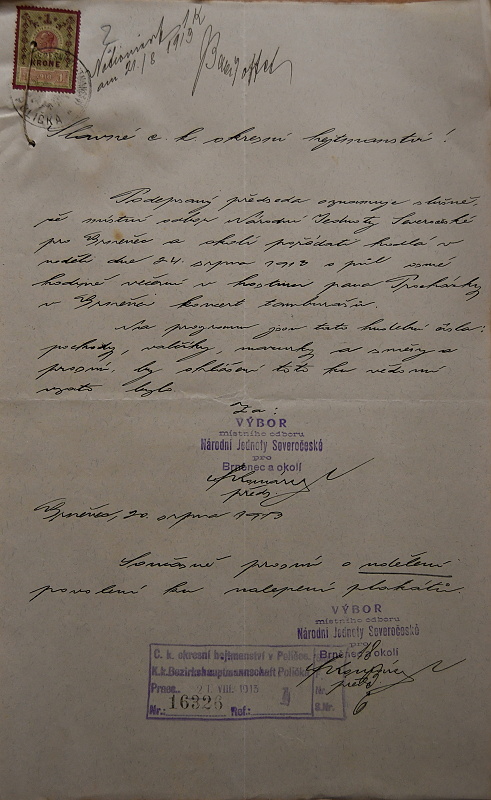 1
KRONE
am 21/8 1913
Slavné c. k. okresní hejtmanství!
Podepsaný předseda oznamuje slušně,
že místní odbor Národní Jednoty Severočeské
pro Brněnec a okolí pořádati hodlá v
neděli dne 24. srpna 1913 o půl osmé
hodině večerní v hostinci pana Procházky
v Brněnci koncert tamburašů.
Na programu jsou tato hudební čísla:
pochody, valčíky, mazurky a směsy a
prosím, by ohlášení toto ku vědomí
vzato bylo.
Za:
VÝBOR
místního odboru
Národní Jednoty Severočeské
pro
Brněnec a okolí
předs.
Brněnec, 20. srpna 1913
Současně prosím o udělení
povolení ku nalepení plakátů.
VÝBOR
místního odboru
Národní Jednoty Severočeské
pro
Brněnec a okolí
předs.
C. k. okresní hejtmanství v Poličce.
K.k. Bezirkshauptmannschaft Polička
Praes. 21. VIII. 1913
Nr.: 16326 Ref.: